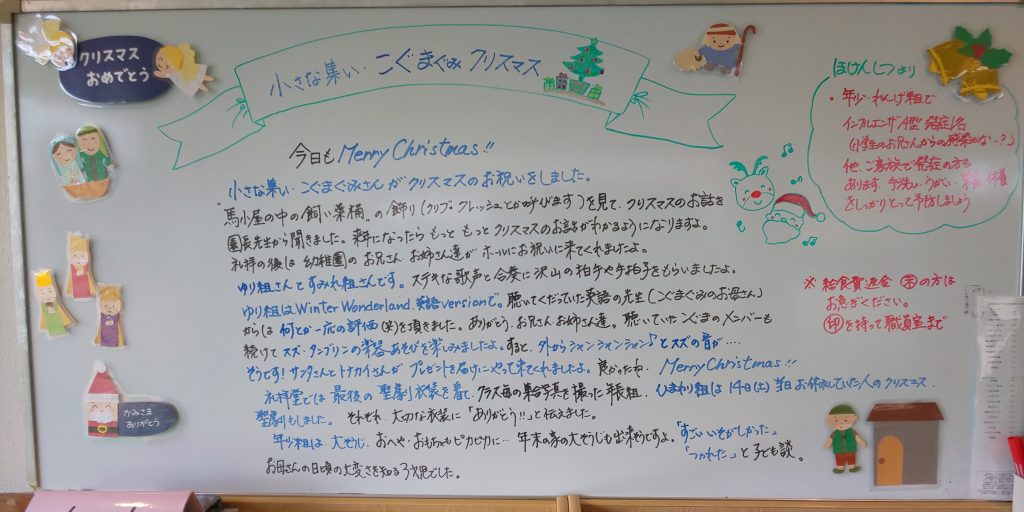 クリスマス
おめでとう
小さな集い・こぐまぐみ クリスマス
今日も Merry Christmas!!
小さな集い・こぐまぐみさんが クリスマスのお祝いをしました。
"馬小屋の中の飼い葉桶"の飾り(クリブ・クレッシュとか呼びます)を見て、クリスマスのお話を
園長先生から聞きました。来年になったら もっと もっと クリスマスのお話がわかるようになりますよ。
礼拝の後は 幼稚園の お兄さん お姉さん達が ホールにお祝いに来てくれましたよ。
ゆり組さんとすみれ組さんです。ステキな歌声と合奏に沢山の拍手や手拍子をもらいましたよ。
ゆり組は Winter Wonderland 英語versionで。聴いてくださっていた英語の先生(こぐまぐみのお母さん)
からは 何とか一応の評価(笑)を頂きました。ありがとう、お兄さんお姉さん達。聴いていた こぐまのメンバーも
続けて スズ・タンブリンの楽器あそびを楽しみましたよ。すると、外からシャンシャンシャン♪とスズの音が…
そうです!サンタさんとトナカイさんが プレゼントを届けにやって来てくれましたよ。良かったね。 Merry Christmas!!
礼拝堂では 最後の 聖劇衣装を着て、クラス毎の集合写真を撮った年長組。ひまわり組は 14日(土)当日お休みしていた人のクリスマス
聖劇もしました。 それぞれ、大切な衣装に「ありがとう!!」と伝えました。
年少組は、大そうじ、おへや・おもちゃもピカピカに… 年末の家の大そうじも出来そうですよ。「すごいいそがしかった」
「つかれた」と子ども談。
お母さんの日頃の大変さを知る3才児でした。
かみさま
ありがとう
ほけんしつより
・年少・れんげ組で
インフルエンザA型 発症1名
(小学生のお兄さんからの感染かな…?)
他、ご家族で発症の方も
あります。手洗い・うがい・
をしっかりとって予防しましょう
※ 給食費返金 の方は
お急ぎください。
印を持って職員室まで